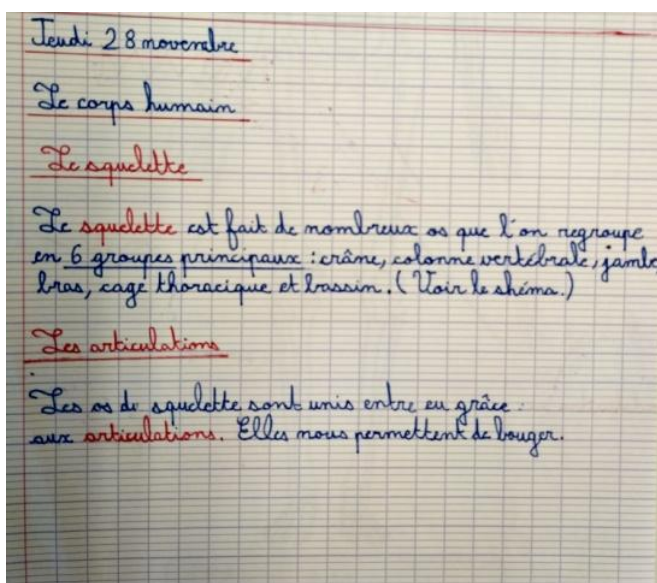 Jeudi 28 novembre
Le corps humain
Le squelette
Le squelette est fait de nombreux os que l'on regroupe
en 6 groupes principaux : crâne, colonne vertébrale, jambe
bras, cage thoracique et bassin. (Voir le shéma.)
Les articulations
Les os du squelette sont unis entre eu grâce
aux articulations. Elles nous permettent de bouger.